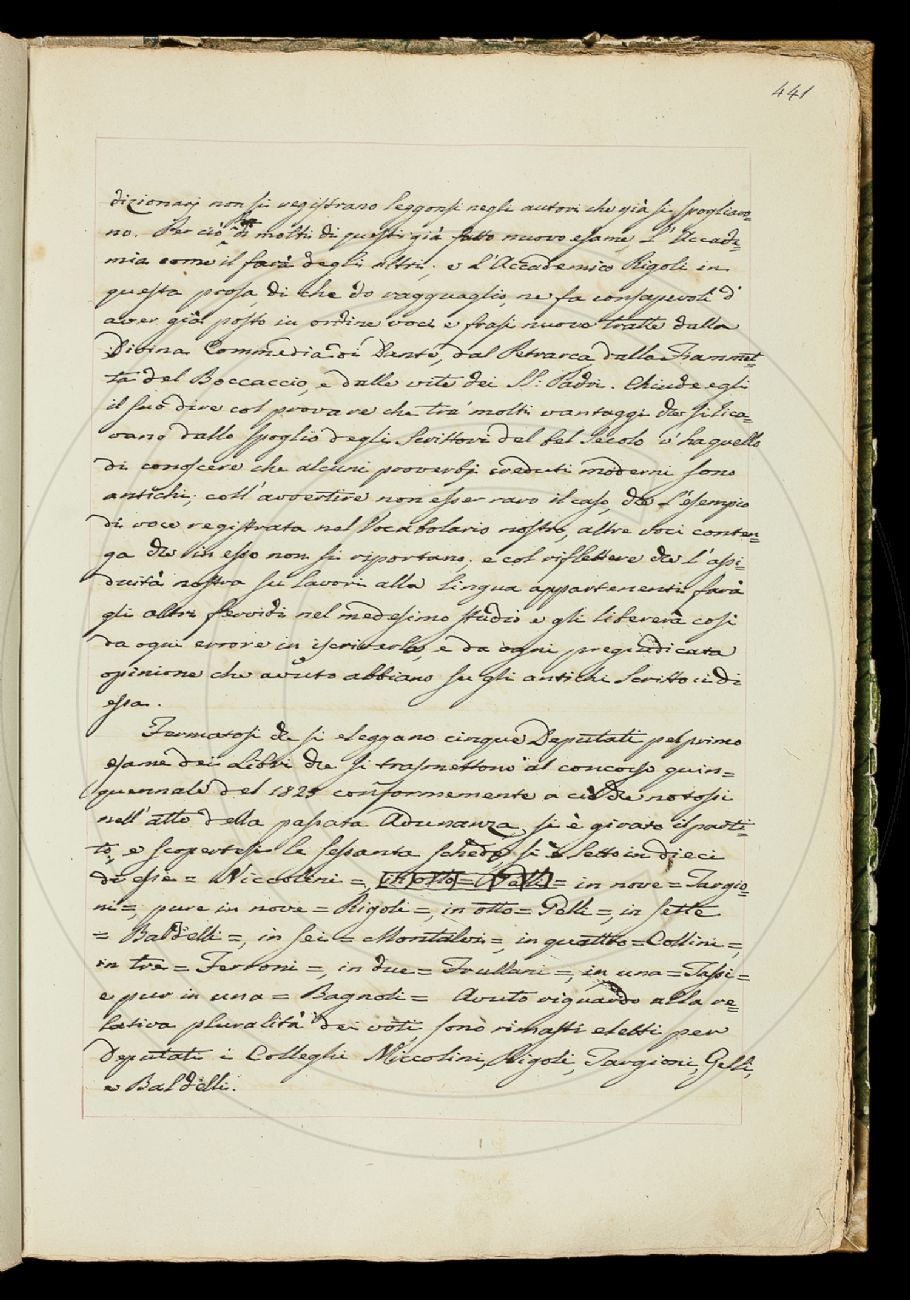 441
dizionarj non si registrano leggonsi negli autori che già si spogliaro=
no. Per ciò ha di molti di questi già fatto nuovo esame, L'Accade=
mia come il farà degli altri; e L'Accademico Rigoli in
questa prosa, di che do ragguaglio, ne fa consapevoli d'
aver già posto in ordine voci e frasi nuove tratte dalla
Divina Commedia di Dante, dal Petrarca dalla Fiammet=
ta del Boccaccio, e dalle vite dei SS: Padri. Chiude egli
il suo dire col provare che tra' molti vantaggi che si rica=
vano dallo spoglio degli Scrittori del bel Secolo v'ha quello
di conoscere che alcuni proverbj creduti moderni sono
antichi; coll'avvertire non esser raro il caso, che L'esempio
di voce registrata nel Vocabolario nostro, altre voci conten=
ga che in esso non si riportano; e col riflettere che l'assi=
duità nostra su lavori alla lingua appartenenti farà
gli altri fervidi nel medesimo studio e gli libererà così
da ogni errore in iscriverla, e da ogni pregiudicata
opinione che avuto abbiano su gli antichi Scrittori di
essa.
Fermatosi che si eleggano cinque Deputati pel primo
esame dei Libri che si trasmettono al concorso quin=
quennale del 1825 conformemente a ciò che notossi
nell'atto della passata Adunanza, si è girato il parti=
to, e scopertesi le sessanta schede, si è letto in dieci
di esse = Niccolini =, in otto = Gelli = in nove = Targio=
ni =, pure in nove = Rigoli =, in otto = Gelli =, in sette
= Baldelli =, in sei = Montalvi =, in quattro = Collini =,
in tre = Ferroni =, in due = Frullani =, in una = Tassi =
e pur in una = Bagnoli = Avuto riguardo alla re=
lativa pluralità dei voti, sono rimasti eletti per
Deputati i Colleghi Niccolini, Rigoli, Targioni, Gelli,
e Baldelli.